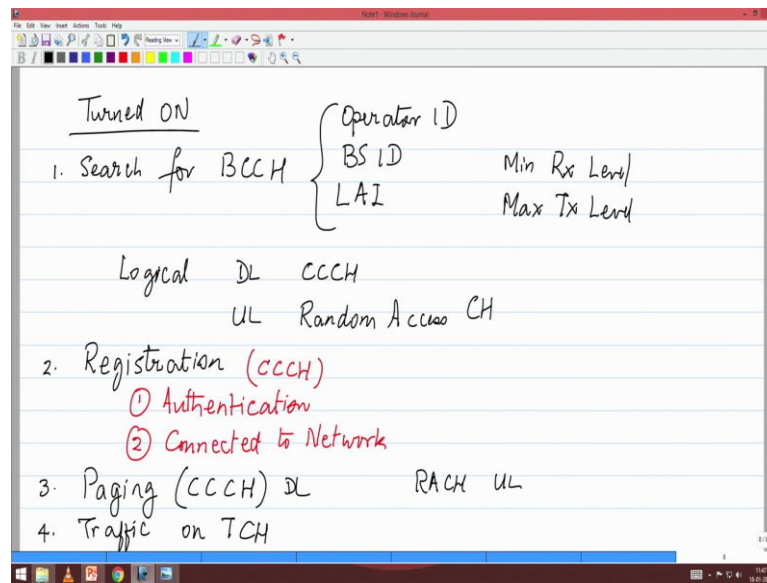 Note1 - Windows Journal
File Edit View Insert Actions Tools Help
Reading View
B I
Turned ON
1. Search for BCCH
Operator ID
BS ID
LAI
Min Rx Level
Max Tx Level
Logical DL CCCH
UL Random Access CH
2. Registration (CCCH)
① Authentication
② Connected to Network
3. Paging (CCCH) DL RACH UL
4. Traffic on TCH